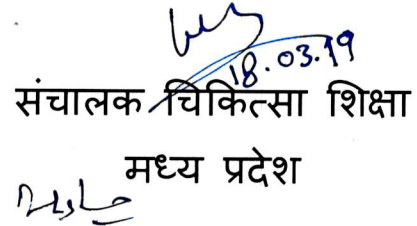 18.03.19
संचालक चिकित्सा शिक्षा
मध्य प्रदेश